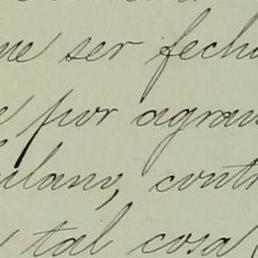 me ser fech
e por agrav
ilano, contr
tal cosa